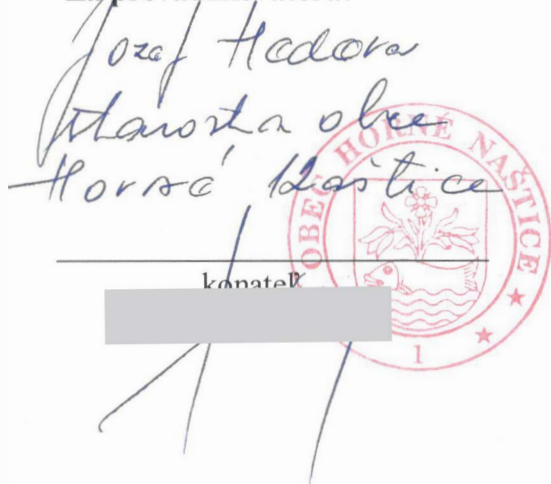 Jozef Hadora
starosta obce
Horné Naštice
konateľ
OBEC HORNÉ NAŠTICE
1